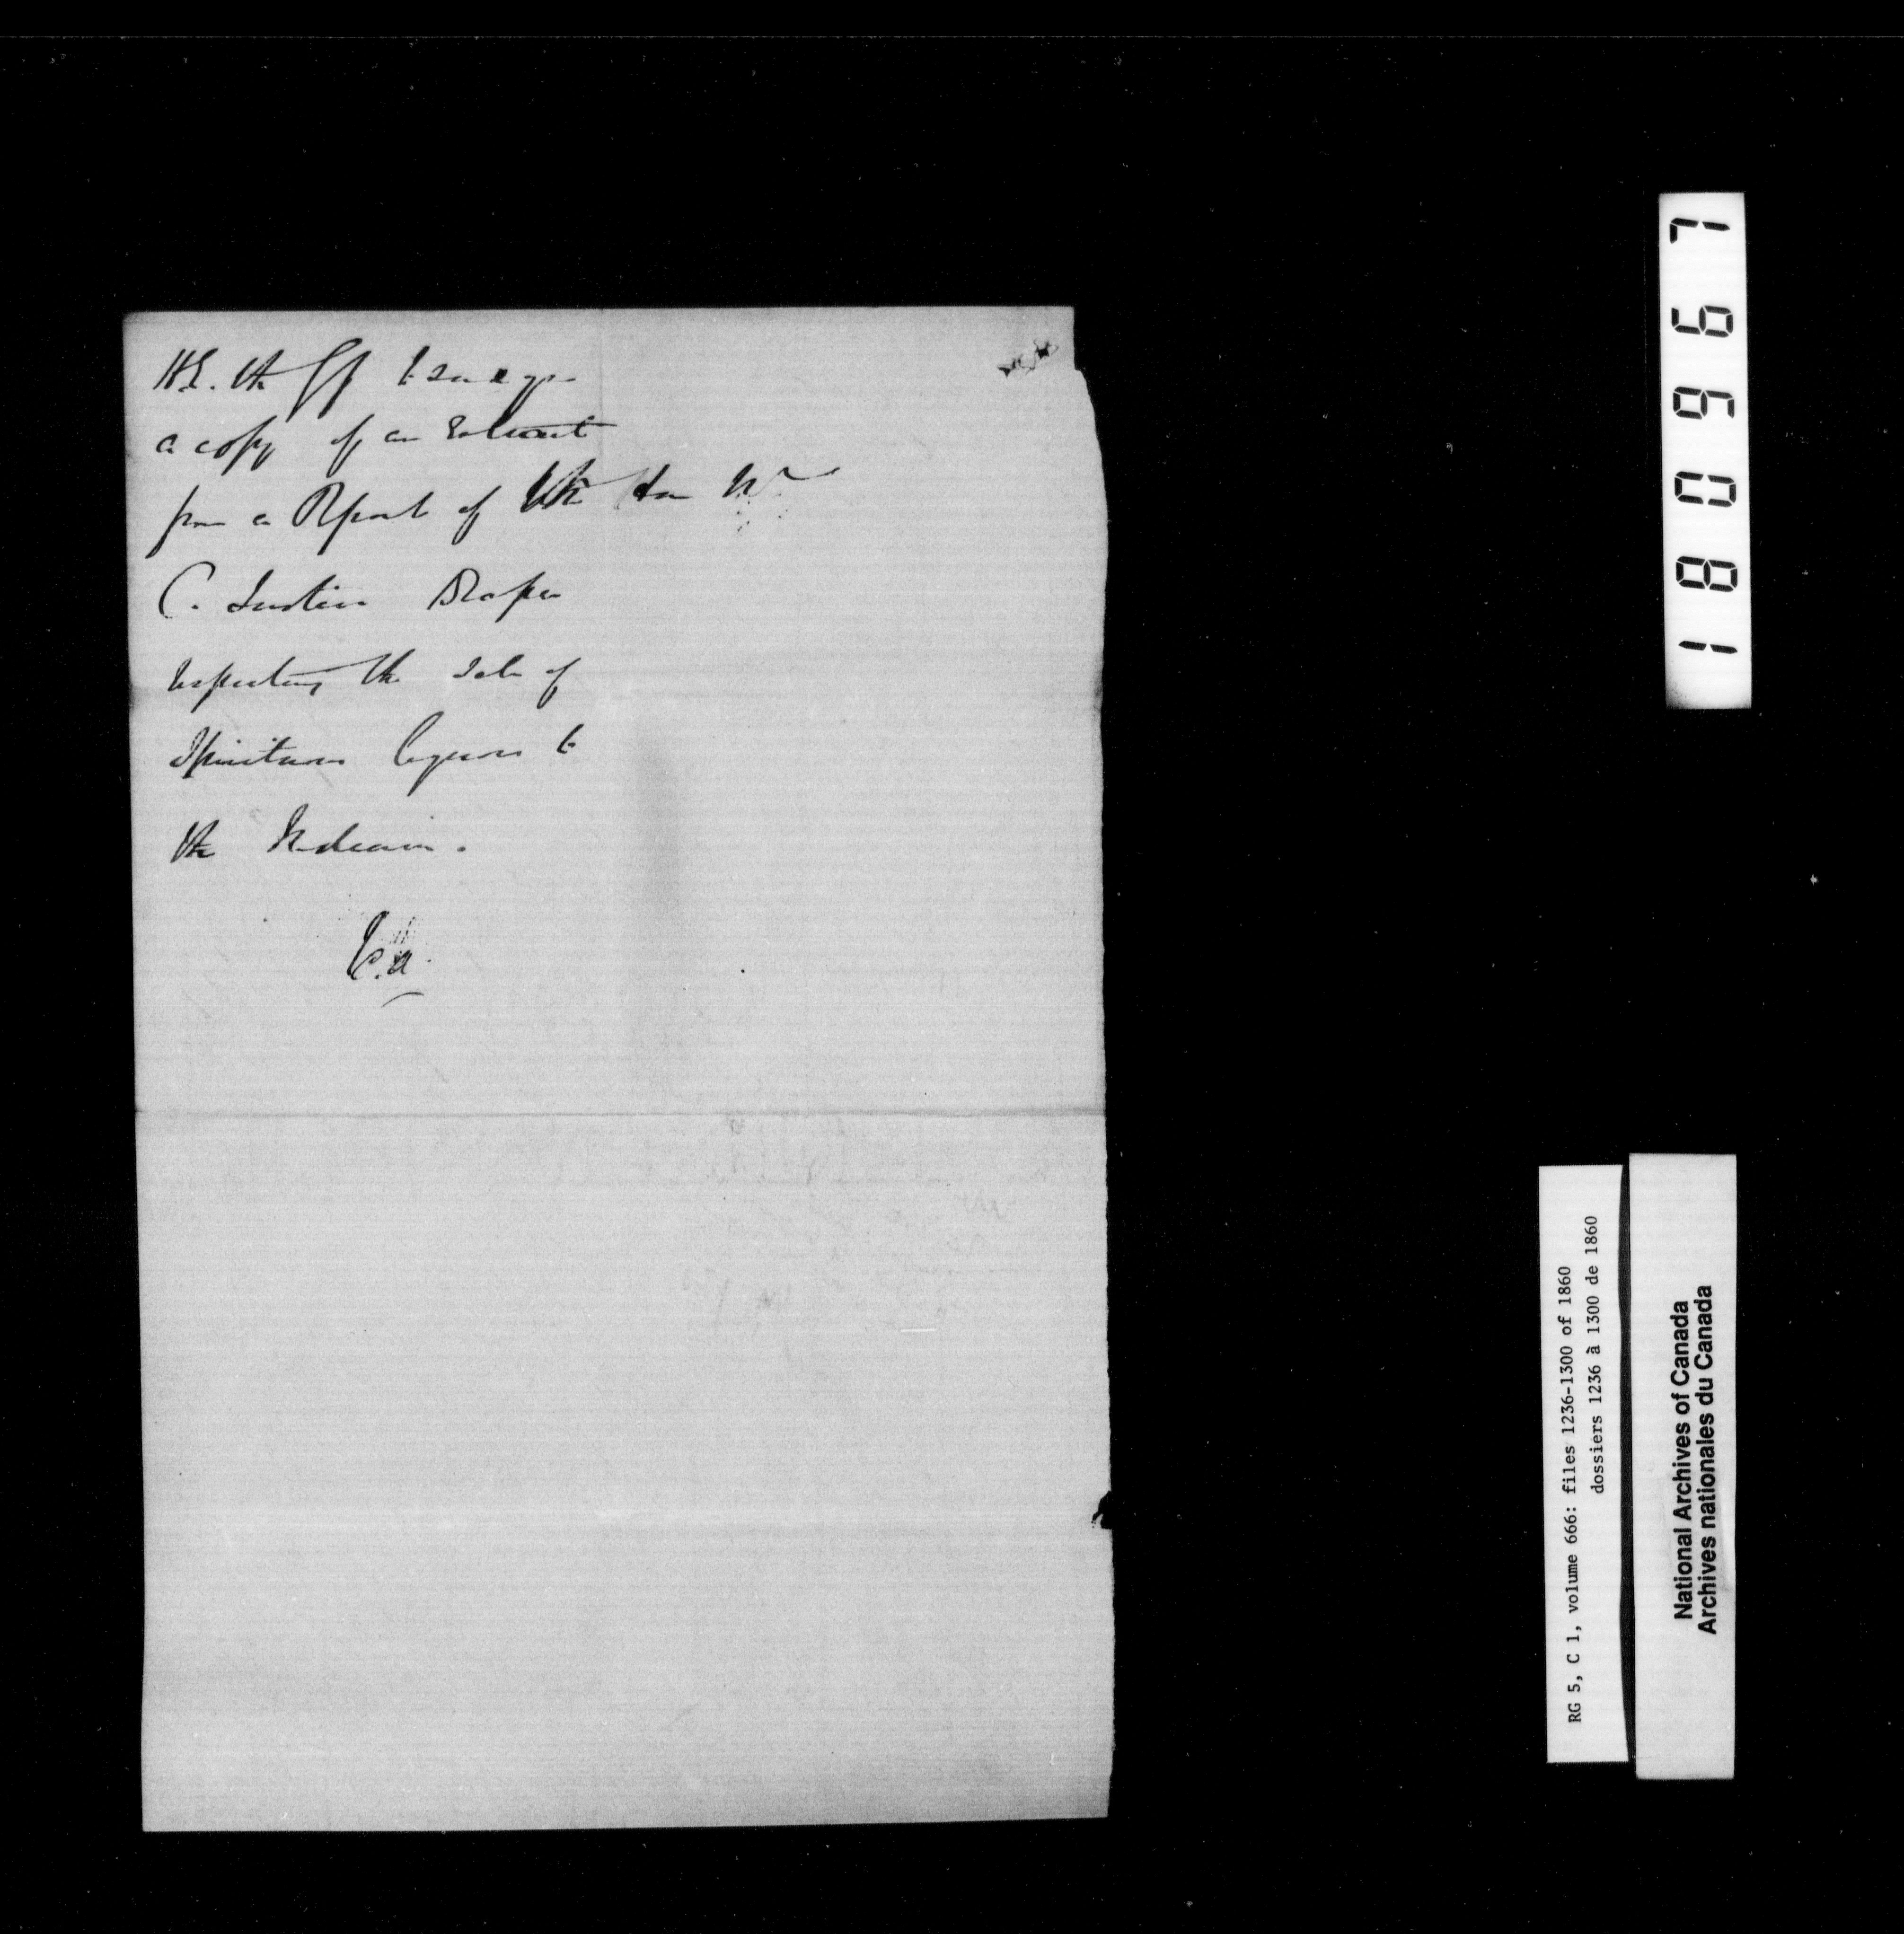 H.E. the to send you
a copy of an Extract
from a Report of the Hon Mr
C. Justice Draper
respecting the sale of
Spirituous liquors to
the Indians.
180967
RG 5, C 1, volume 666: files 1236-1300 of 1860
dossiers 1236 à 1300 de 1860
National Archives of Canada
Archives nationales du Canada